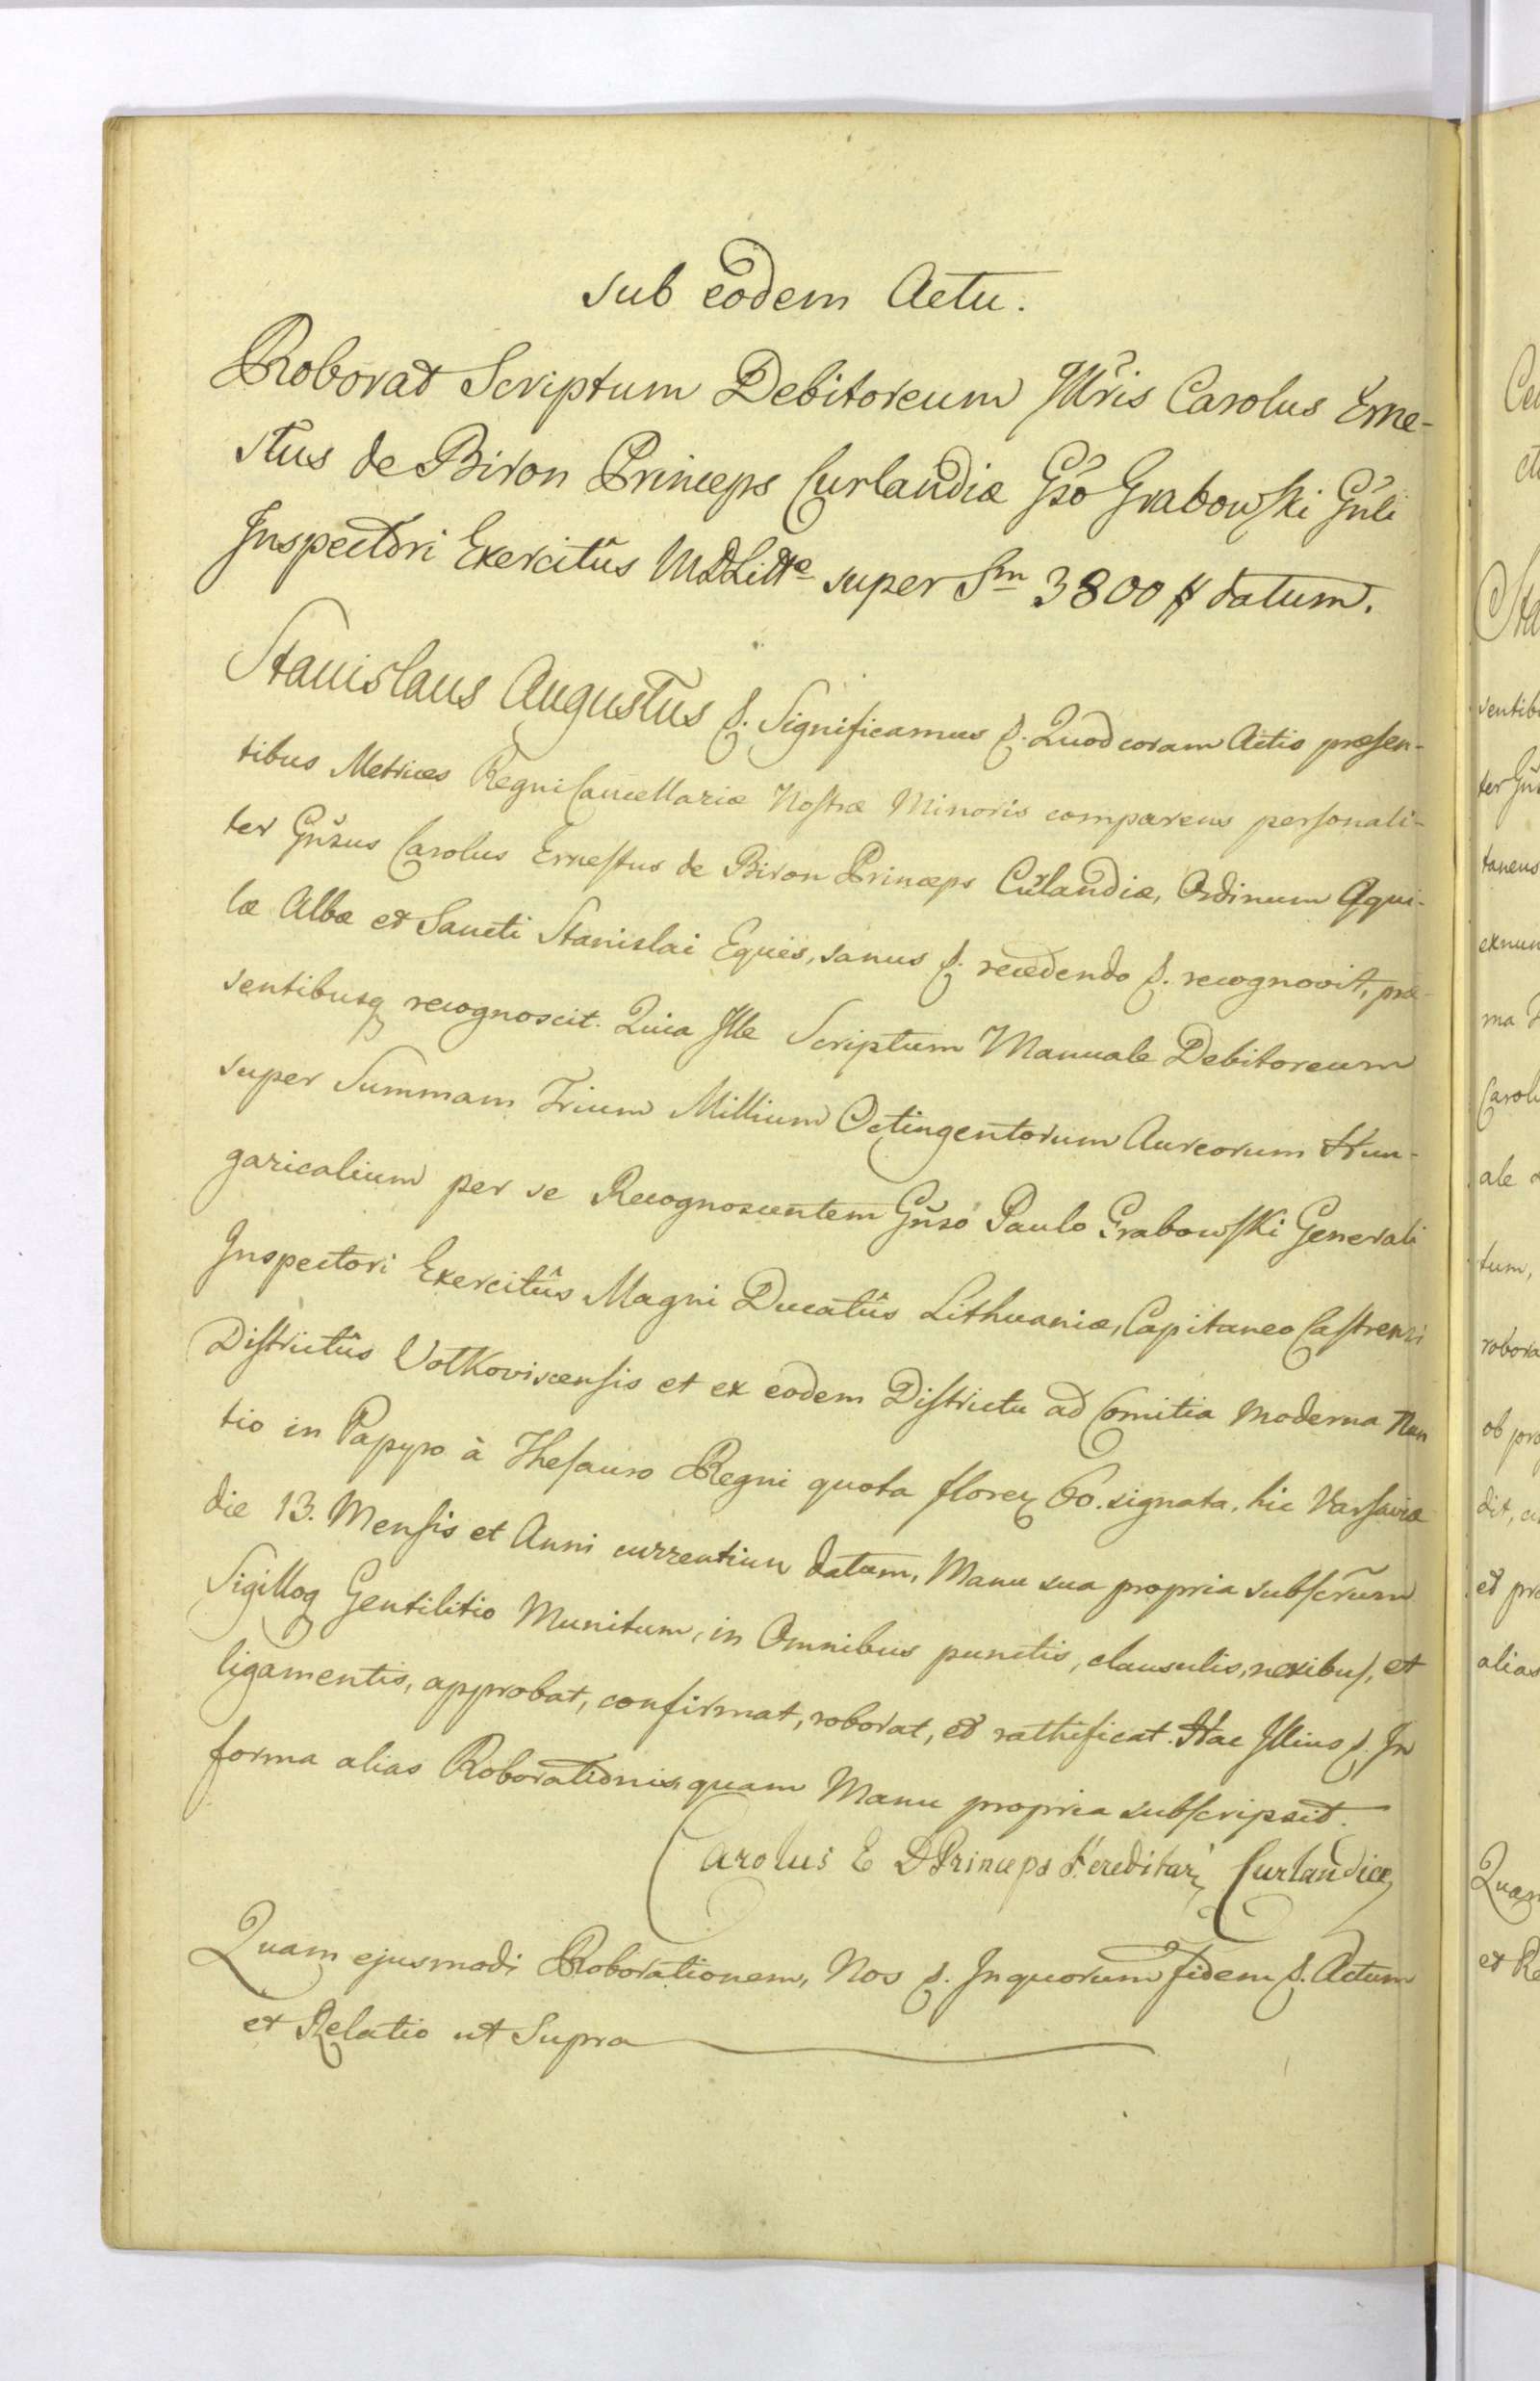 sub eodem Actu.
Roborat Scriptum Debitoreum Illris Carolus Erne-
stus de Biron Princeps Curlandiæ Gso Grabowski Gnli
Inspectori Exercitûs MDLittæ super Sm 3800 # datum.
Stanislaus Augustus &. Significamus &. Quod coram Actis præsen-
tibus Metrices Regni Cancellariæ Nostræ Minoris comparens personali-
ter Gnsus Carolus Ernestus de Biron Princeps Curlandiæ, Ordinum Aqui-
læ Albæ et Sancti Stanislai Eques, sanus &. recedendo &. recognovit, præ-
sentibusq recognoscit. Quia Ille Scriptum Manuale Debitoreum
super Summam Trium Millium Octingentorum Aureorum Hun-
garicalium per se Recognoscentem Gnso Paulo Grabowski Generali
Inspectori Exercitûs Magni Ducatûs Lithuaniæ, Capitaneo Castrensi
Districtûs Volkoviscensis et ex eodem Districtu ad Comitia moderna Nun
tio in Papyro à Thesauro Regni quota floren 60. signata, hic Varsaviæ
die 13. Mensis et Anni currentium datum, Manu sua propria subscrum
Sigilloq Gentilitio Munitum, in Omnibus punctis, clausulis, nexibus, et
ligamentis, approbat, confirmat, roborat, et rathificat. Hac Illius &. In
forma alias Roborationis quam Manu propria subscripsit.
Carolus E D Princeps Hereditari Curlandiæ
Quam ejusmodi Roborationem, Nos &. In quorum fidem &. Actum
et Relatio ut Supra